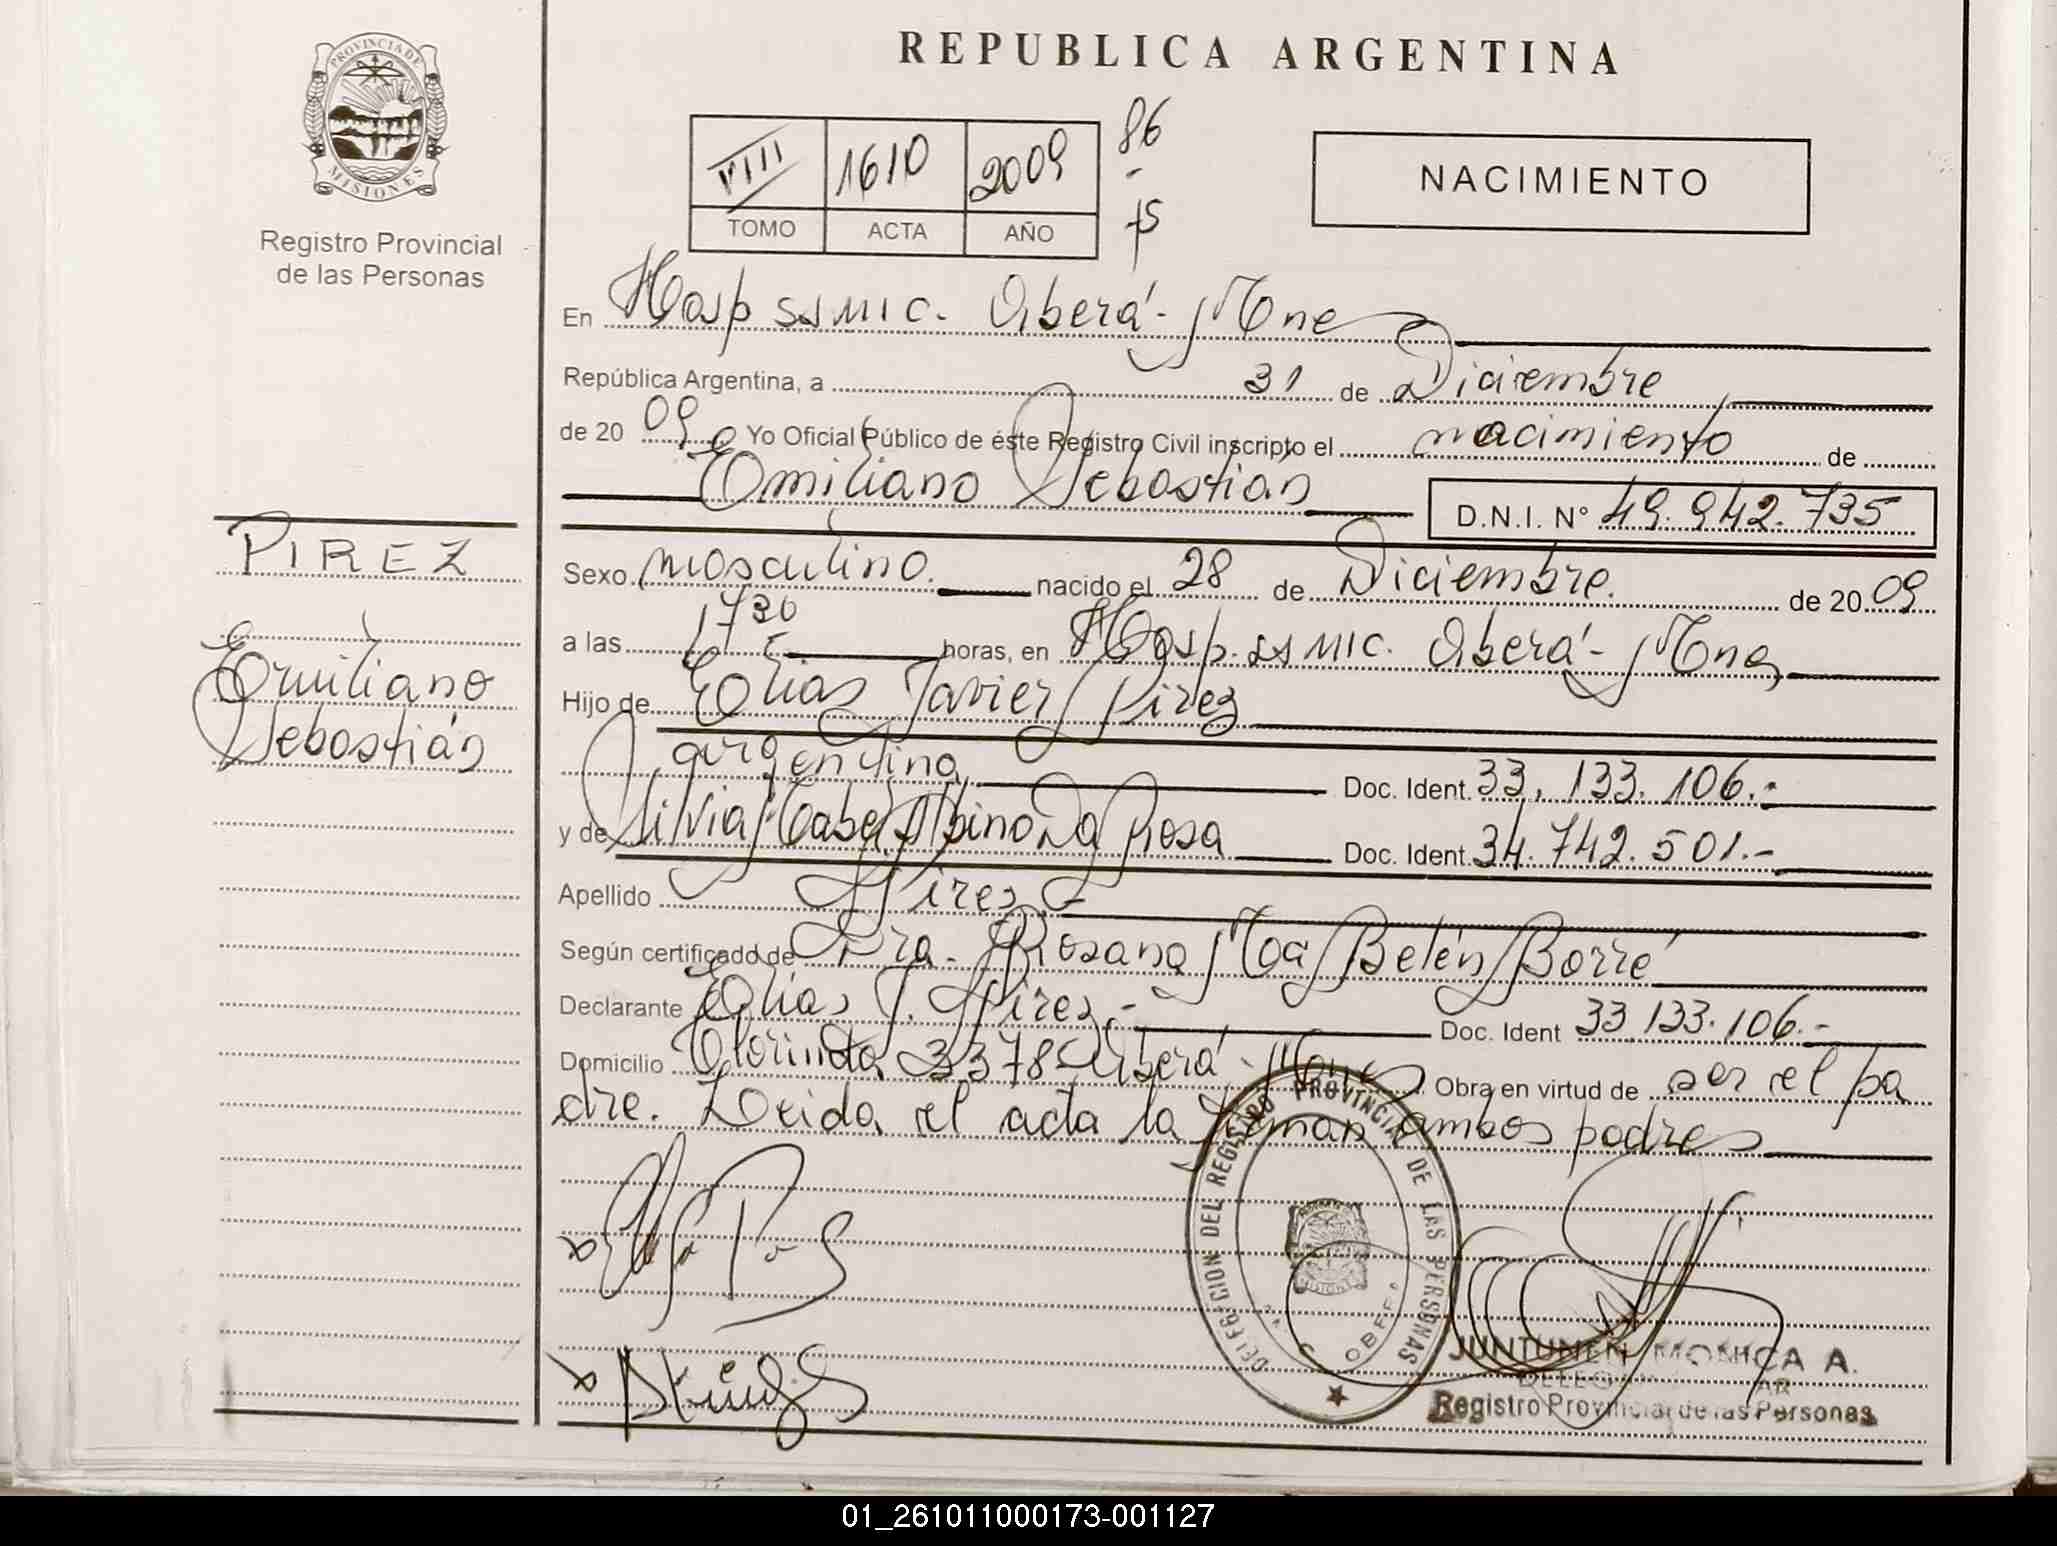 REPUBLICA ARGENTINA
PROVINCIA DE
MISIONES
Registro Provincial
de las Personas
VIII 1610 2009
TOMO ACTA AÑO
86
-
NACIMIENTO
En Hosp SSMIC. Oberá - Mnes
República Argentina, a 31 de Diciembre
de 2009 Yo Oficial Público de éste Registro Civil inscripto el nacimiento de
Emiliano Sebastián D.N.I. N° 49.942.735
PIREZ
Emiliano
Sebastián
Sexo masculino. nacido el 28 de Diciembre. de 2009
a las 1730 horas, en Hosp. SSMIC. Oberá - Mnes
Hijo de Elias Javier Pirez
argentina Doc. Ident. 33.133.106.-
y de Silvia Albino Da Rosa Doc. Ident. 34.742.501.-
Apellido Pirez.-
Según certificado de Dra. Rosana Ma Belén Borré
Declarante Elias J. Pirez.- Doc. Ident 33.133.106.-
Domicilio Clorinda 3378 Oberá - Mnes Obra en virtud de ser el pa
dre. Leida el acta la firman ambos padres
DELEGACION DEL REGISTRO PROVINCIAL DE LAS PERSONAS
MISIONES
JUNTUNEN MONICA A.
Registro Provincial de las Personas
01_261011000173-001127